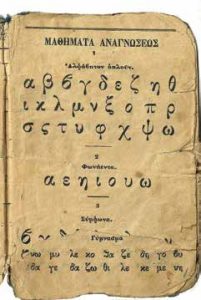 ΜΑΘΗΜΑΤΑ ΑΝΑΓΝΩΣΕΩΣ
1
Ἀλφάβητον ἁπλοῦν.
α β ϐ γ δ ε ζ η θ
ι κ λ μ ν ξ ο π ρ
σ ς τ υ φ χ ψ ω
2
Φωνήεντα.
α ε η ι ο υ ω
3
Σύμφωνα.
Γύμνασμα
νω μυ λε κο ζα ζε δη γο θυ
δα γε δα ζω θι λε κε με νε